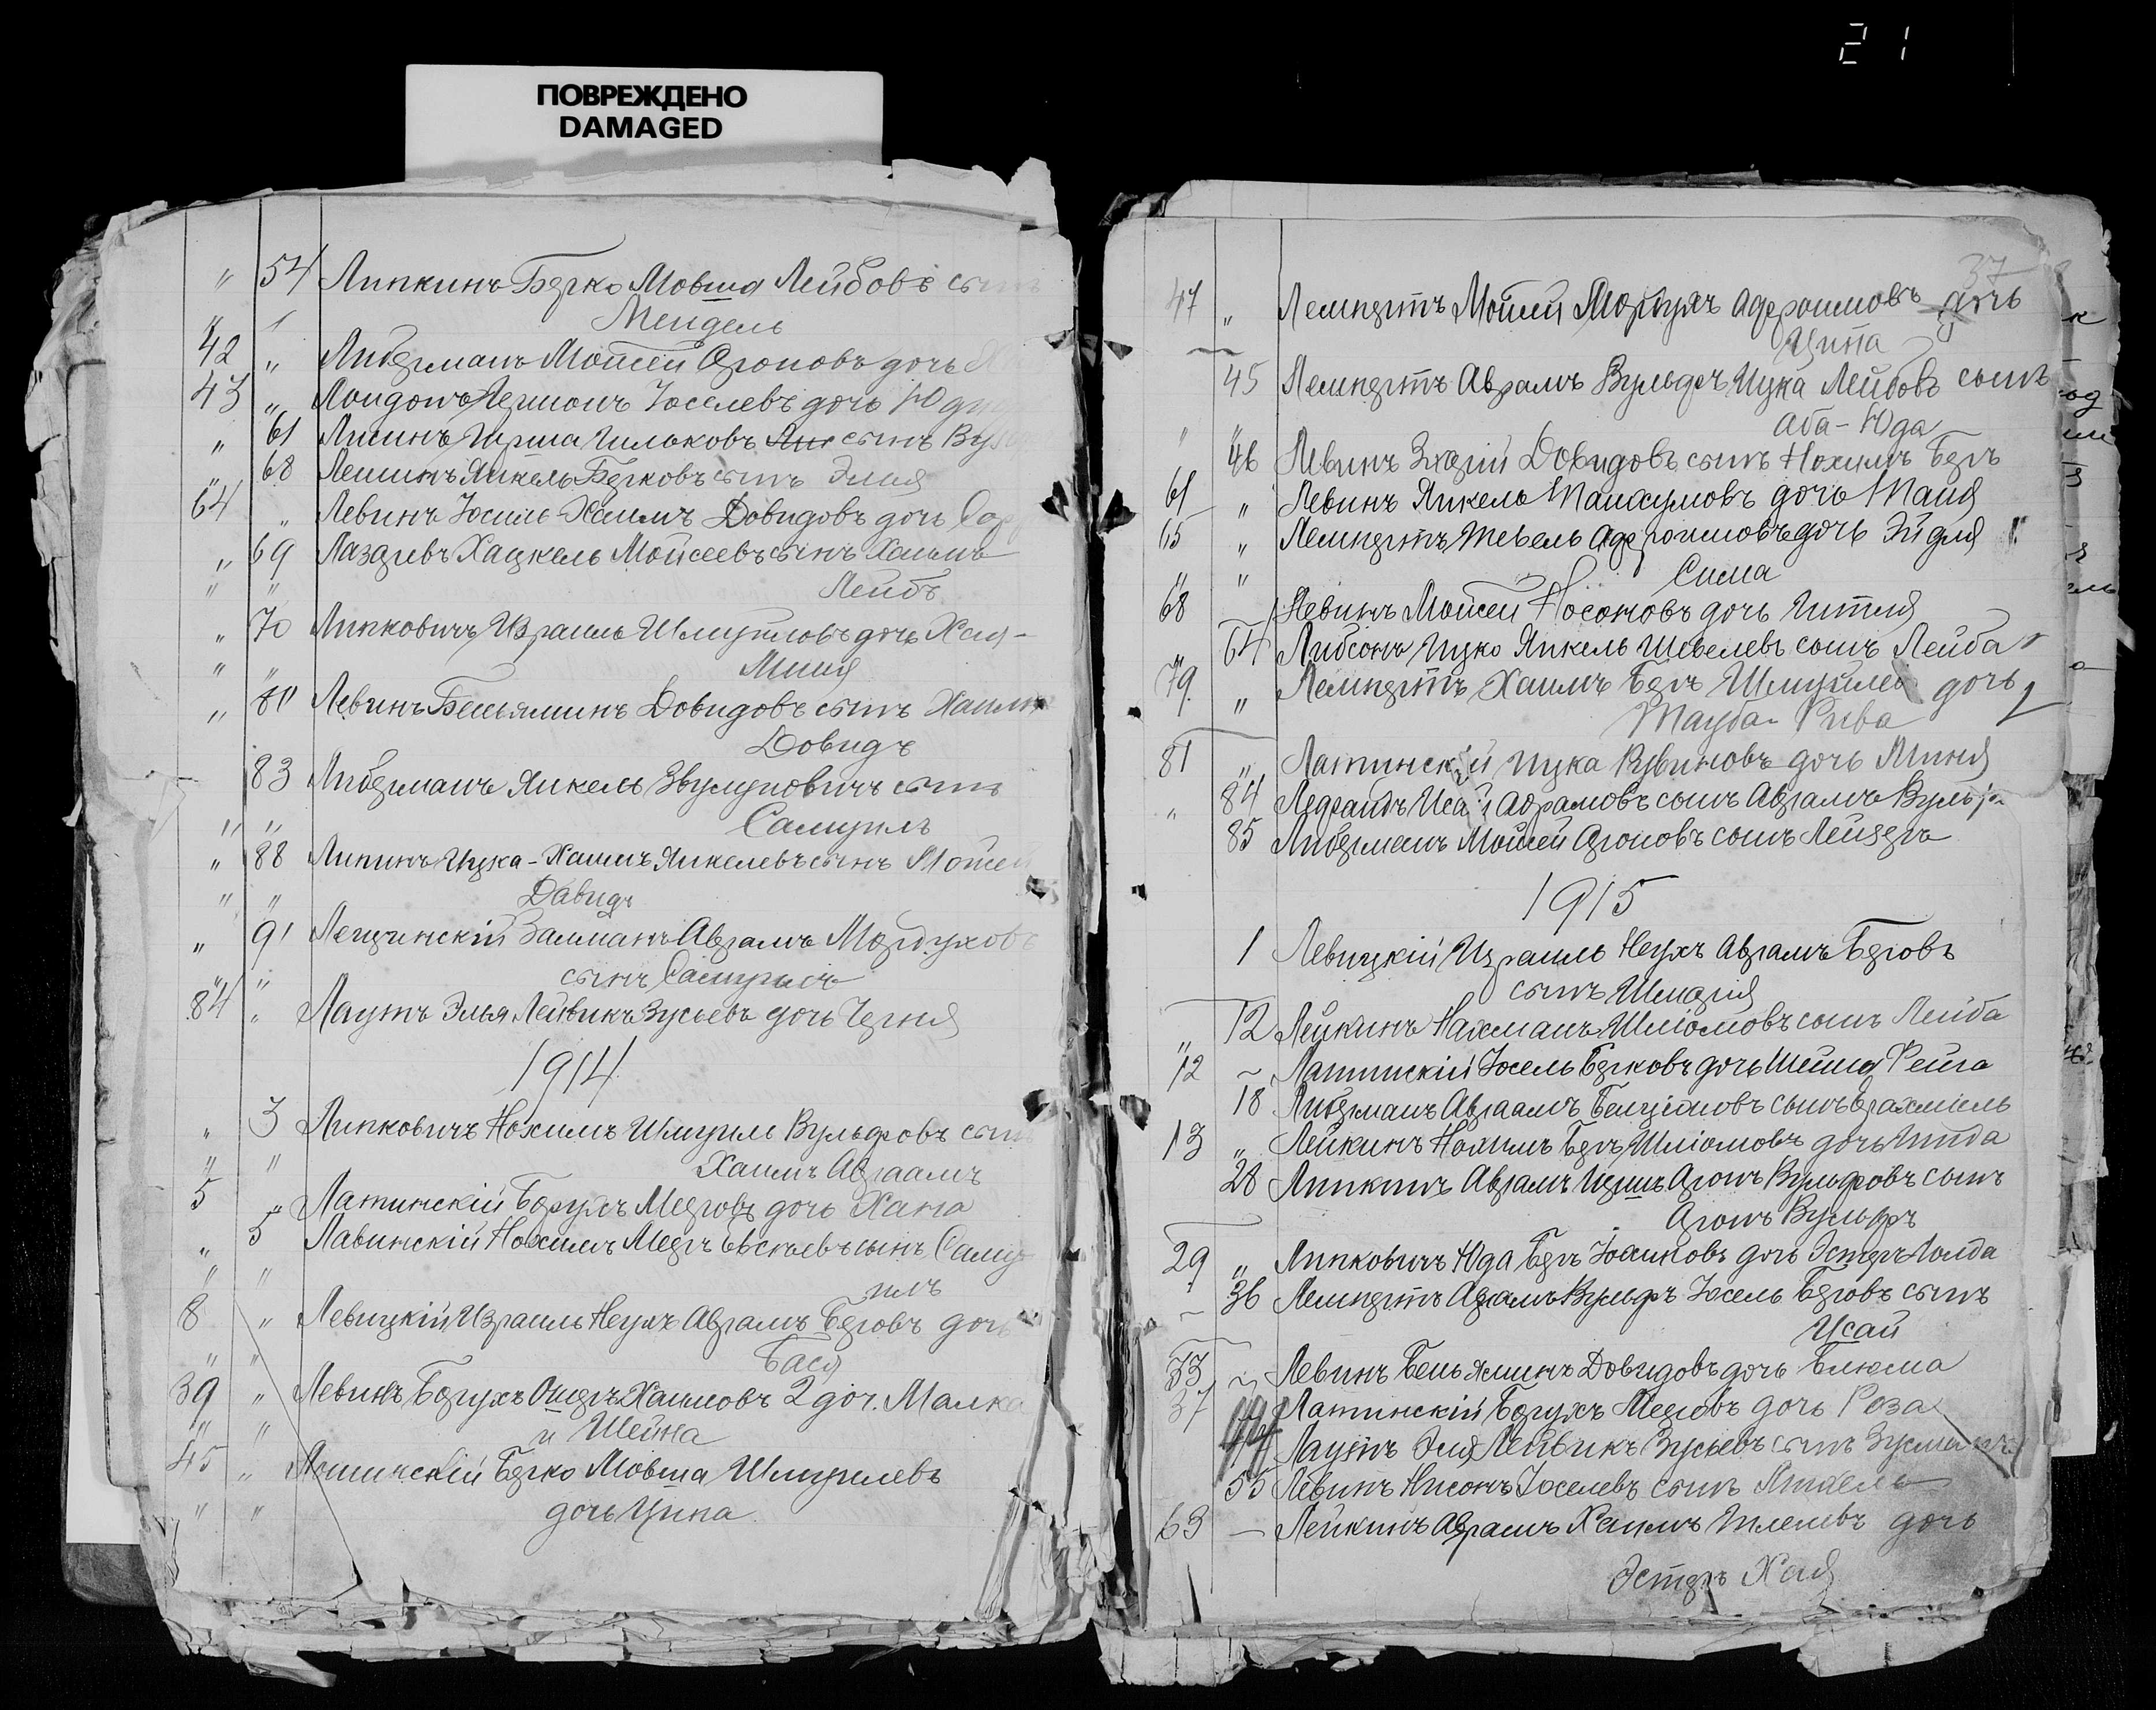 21
ПОВРЕЖДЕНО
DAMAGED
" 54 Липкинъ Берко Мовша Лейбовъ сынъ
" " Мендель
42 " Либерманъ Мойсей Ароновъ дочь
43 " Лондонъ Герионъ Иоселевъ дочь
" 61 Лисинъ Ицковъ сынъ
" 68 Лешинъ Янкель Берковъ сынъ Элия
64 " Левинъ Иосиль Хаимъ Довидовъ дочь
" 69 Лазаревъ Хацкель Мойсеевъ сынъ Хаимъ
" " Лейбъ
" 70 Липковичъ Израиль Шмуйловъ дочь Хая-
" " Миня
" 81 Левинъ Беньяминъ Довидовъ сынъ Хаимъ
Довидъ
83 Либерманъ Янкель Звулуновичъ сынъ
" " Самуилъ
" 88 Липинъ Ицка-Хаимъ Янкелевъ сынъ Мойсей
" " Давидъ
" 91 Лещинскій Залманъ Аврамъ Мордуховъ
" " сынъ Самуилъ
84 " Лаутъ Элья Лейвикъ Зусьевъ дочь Черня
1914
" 3 Липковичъ Нохимъ Шмуиль Вульфовъ сынъ
" " Хаимъ Авраамъ
5 " Латинскій Борухъ Меровъ дочь Хана
" 5 Лавинскій Нохимъ Меръ Евсѣевъ сынъ Саму
" " илъ
8 " Левицкій Израиль Неухъ Аврамъ Беровъ дочь
" " Бася
39 " Левинъ Борухъ Ошеръ Хаимовъ 2 доч. Малка
" " и Шейна
45 " Берко Мовша Шмуилевъ
" " дочь Ципа
37
47 " Лемперտъ Мойсей Мордухъ Афроимовъ дочь
Ципа
45 Лемпертъ Аврамъ Вульфъ Ицка Лейбовъ сынъ
" " Аба-Юда
46 Левинъ Довидовъ сынъ Нохимъ Беръ
61 " Левинъ Янкель Танхумовъ дочь Таня
65 " Лемпертъ Тевель Афроимовъ дочь Эйдля
" " Сима
68 " Левинъ Мойсей Носоновъ дочь Гитля
" 64 Либсонъ Ицко Янкель Шевелевъ сынъ Лейба
79 " Лемпертъ Хаимъ Беръ Шмуйлев дочь
Тауба-Рива
81 " Латинскій Ицка Рувиновъ дочь Миня
" 84 Исай Абрамовъ сынъ Аврамъ Вульфъ
85 Либерманъ Мойсей Ароновъ сынъ Лейзеръ
1915
1 Левицкій Израиль Неухъ Аврамъ Беровъ
сынъ Шмерия
" 12 Лейкинъ Нахманъ Шліомовъ сынъ Лейба
12 ~ Латинскій Иосель Берковъ дочь Шейна Фейга
18 Либерманъ Авраамъ Бенціоновъ сынъ Ерахміель
13 " Лейкинъ Нохимъ Беръ Шліомовъ дочь Гинда
28 Липкинъ Аврамъ Гиршъ Аронъ Вульфовъ сынъ
Аронъ Вульфъ
29 " Липковичъ Юда Беръ дочь Эстеръ Голда
~ 36 Лемпертъ Аврамъ Вульфъ Иосель Беровъ сынъ
Исай
33 ~ Левинъ Беньяминъ Довидовъ дочь Блюма
37 Латинскій Борухъ Меровъ дочь Роза
44 Лаутъ Эля Лейвикъ Зусьевъ сынъ
55 Левинъ Нисонъ Иоселевъ сынъ
63 — Лейкинъ Аврамъ Хаимъ дочь
Эстеръ Хая